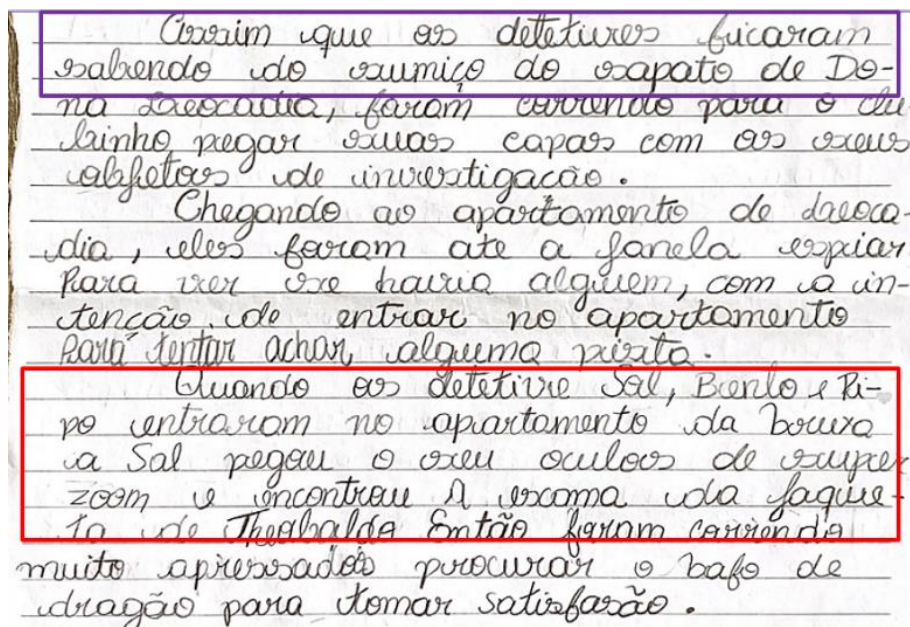 Assim que os detetives ficaram
sabendo do sumiço do sapato de Do-
na Leocadia, foram correndo para o clu-
binho pegar suas capas com os seus
objetos de investigacão.
Chegando ao apartamento de daeoca-
dia, eles foram ate a janela espiar
Para ver se havia alguém, com a in-
tenção de entrar no apartamento
Para tentar achar alguma pista.
Quando os detetive Sal, Bento e Pi-
po entraram no apartamento da bruxa
a Sal pegou o seu oculos de super
zoom e encontrou A escama da jaque-
ta de Theobaldo Então foram correndo
muito apressados procurar o bafo de
dragão para tomar satisfasão.